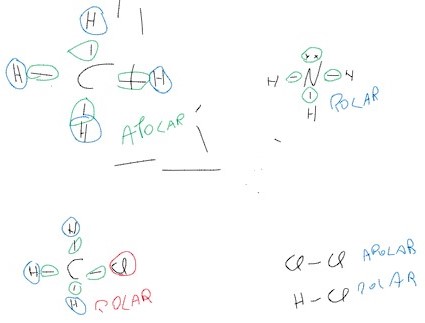 H
H - C - H
H
APOLAR
××
H - N - H
H
POLAR
H
H - C - Cl
H
POLAR
Cl - Cl APOLAR
H - Cl POLAR